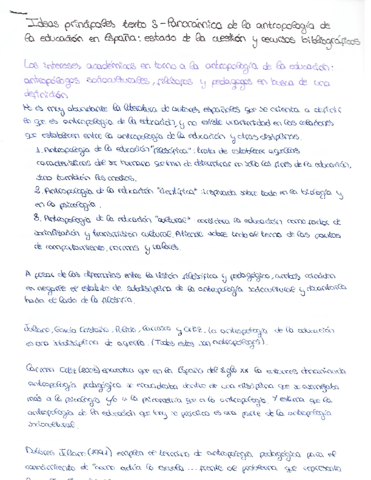 Ideas principales texto 3 - Panorámica de la antropología de
la educación en España: estado de la cuestión y recursos bibliográficos
Los intereses académicos en torno a la antropología de la educación:
antropólogos socioculturales, filósofos y pedagogos en busca de una
definición
No es muy abundante la literatura de autores españoles que se orienta a definir
lo que es antropología de la educación, y no existe unanimidad en las relaciones
que establecen entre la antropología de la educación y otras disciplinas.
1. Antropología de la educación "filosófica": trata de establecer aquellas
características del ser humano que han de determinar no sólo los fines de la educación,
sino también los medios.
2. Antropología de la educación "científica" inspirada sobre todo en la biología y
en la psicología.
3. Antropología de la educación "cultural" considera la educación como factor de
socialización y transmisión cultural. Atiende sobre todo al tema de las pautas
de comportamiento, normas y valores.
A pesar de las diferencias entre la visión filosófica y pedagógica, ambas coinciden
en negarle el estatuto de subdisciplina de la antropología sociocultural y decantarla
hacia el lado de la filosofía.
Juliano, García Castaño, Pulido, y la antropología de la educación
es una subdisciplina de aquella. (Todos estos son antropólogos).
que en la España del siglo XX la entonces denominada
antropología pedagógica se encuadraba dentro de una disciplina que se acercaba
más a la psicología y/o a la que a la antropología. Y estima que la
antropología de la educación que hoy se practica es una parte de la antropología
sociocultural
Dolores Juliano emplea el término de antropología pedagógica para el
conocimiento de cómo actúa la escuela que representa